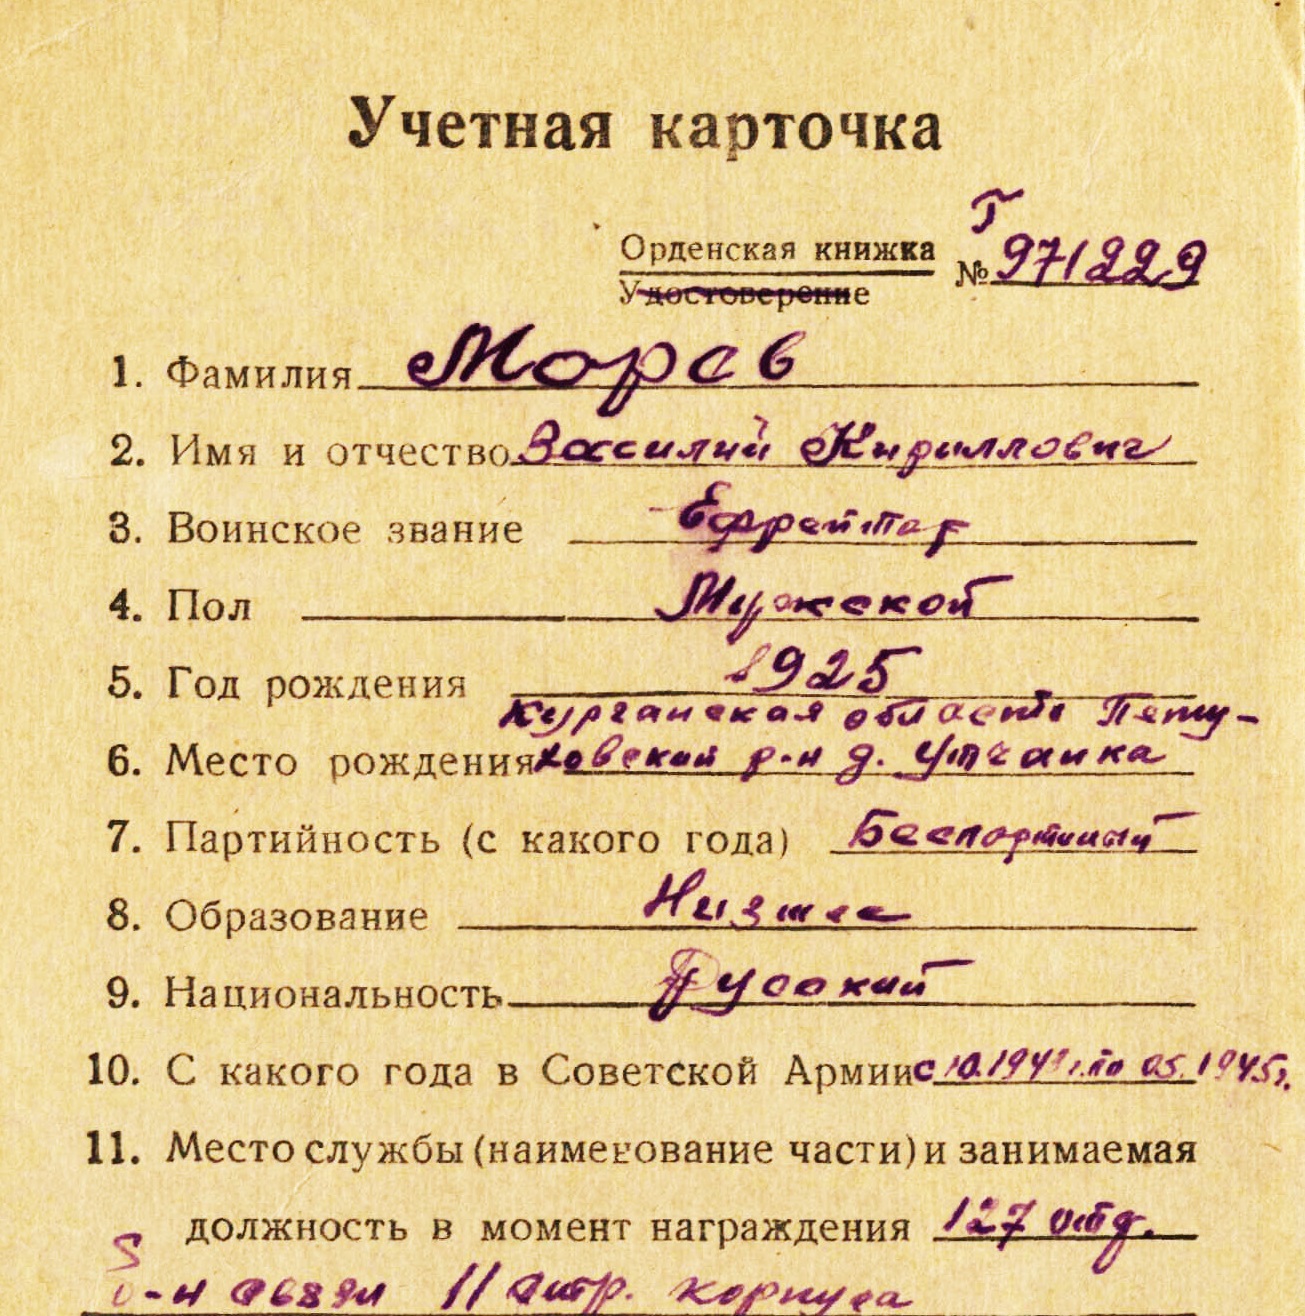 Учетная карточка
Г
Орденская книжка № 971229
Удостоверение
1. Фамилия Морев
2. Имя и отчество Василий Кириллович
3. Воинское звание Ефрейтор
4. Пол Мужской
5. Год рождения 1925
Курганская область Пету-
6. Место рождения ховский р-н д. Утчанка
7. Партийность (с какого года) Беспартийный
8. Образование Низшее
9. Национальность Русский
10. С какого года в Советской Армии с по 05.1945г.
11. Место службы (наименование части) и занимаемая
должность в момент награждения 127 отд.
б-н связи 11 стр. корпуса